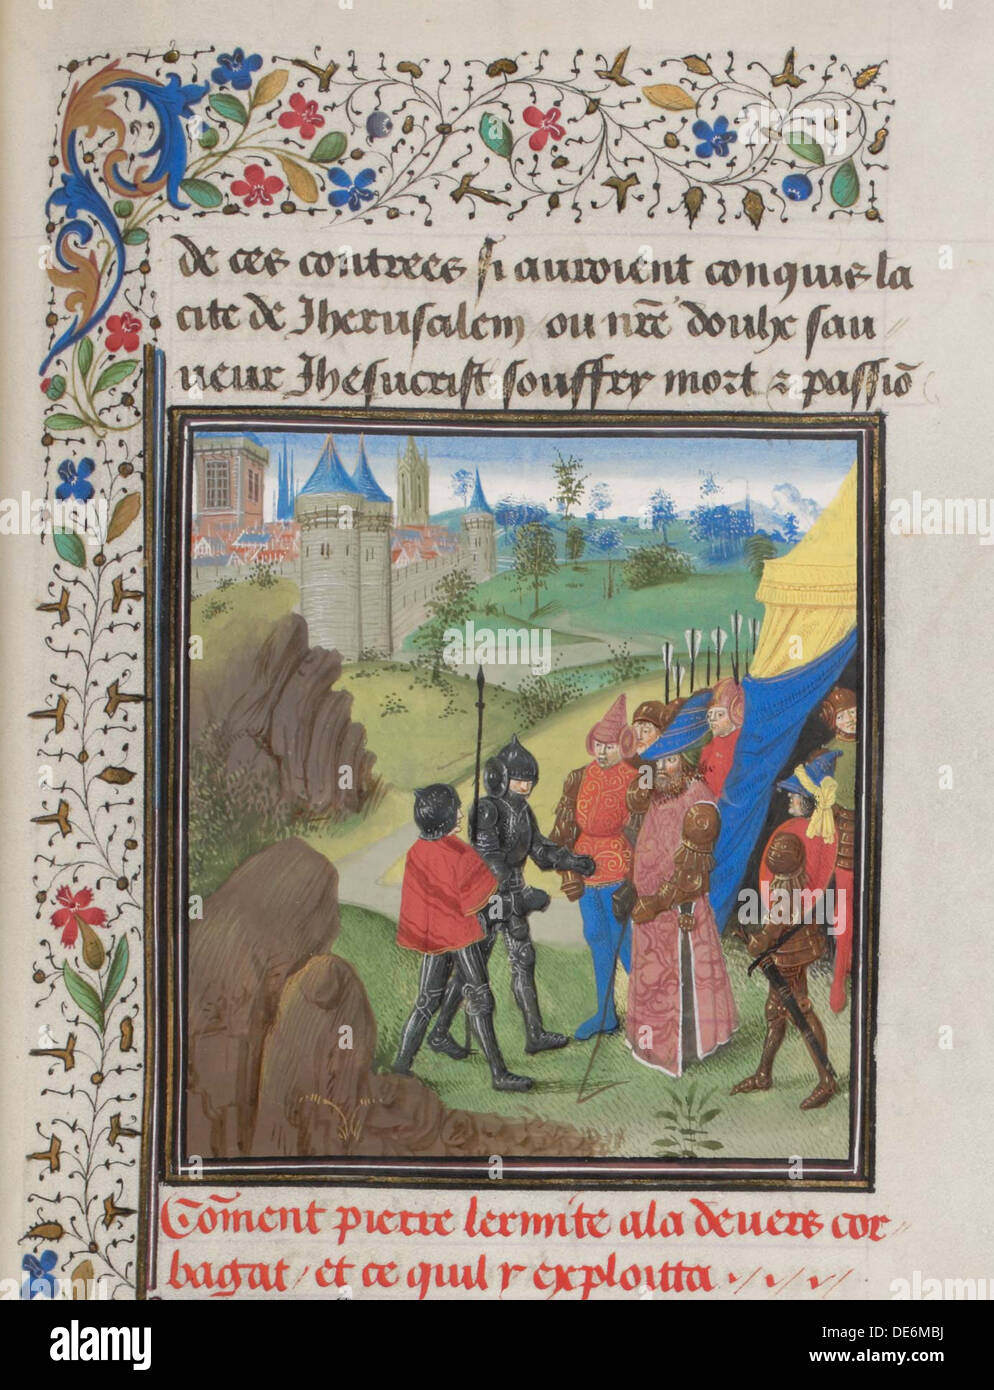 de ces contrees si auroient conquis la
cite de Jherusalem / ou nr̃e doulx sau //
ueur Jhesucrist souffry mort ⁊ passiõ
Cõment pierre lermite ala deuers cor //
bagat / et ce quil y exploitta . / . / . /
alamy
a
alamy
Image ID: DE6MBJ
www.alamy.com